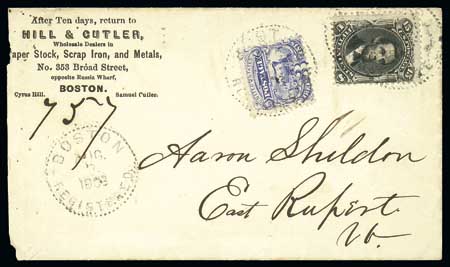 After Ten days, return to
HILL & CUTLER,
Wholesale Dealers in
aper Stock, Scrap Iron, and Metals,
No. 353 Broad Street,
opposite Russia Wharf,
BOSTON.
Cyrus Hill. Samuel Cutler.
757
BOSTON
REGISTERED
Aaron Sheldon
East Rupert
Vt.